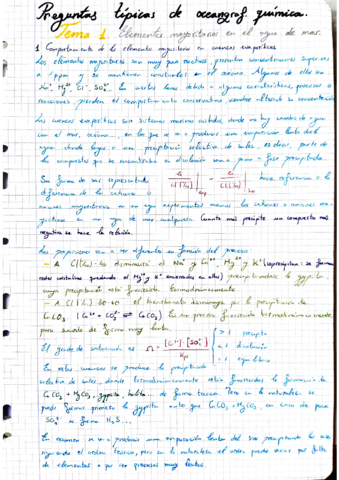 Preguntas típicas de oceanograf. química.
Tema 1. Elementos mayoritarios en el agua de mar.
1. Comportamiento de los elementos mayoritarios en cuencas evaporíticas
Los elementos mayoritarios son muy poco reactivos, presentan concentraciones superiores
a 1 ppm y se mantienen constantes en el océano. Algunos de ellos son
Na⁺, Mg²⁺, Cl⁻, SO₄²⁻. En ciertas zonas debido a algunas características, procesos o
reacciones pierden el comportamiento conservativo, viendose alterada su concentración
Las cuencas evaporíticas son sistemas marinos aislados, donde no hay cambio de agua
con el mar, océano..., en las que se va a producir una evaporación lenta del
agua, dando lugar a una precipitación selectiva de sales, es decir, parte de
los compuestos que se encuentran en disolución van a pasar a fase precipitada.
Su forma de ser expresada
hace referencia a la
diferencia de los cationes o
aniones mayoritarios en un agua
en un agua de mar cualquiera (cuanto más precipite un compuesto más
negativa se hace la relación.
Las proporciones van a ser diferentes en función del proceso
- A Cl (‰)
precipitación está favorecida termodinámicamente
- A Cl (‰) 30-40 el bicarbonato disminuye por la precipitación de
CaCO₃ (Ca²⁺ + CO₃²⁻ ⇌ CaCO₃) Es un proceso favorecido termodinámicamente,
pero sucede de forma muy lenta.
El grado de saturación es Ω = [Ca²⁺]·[SO₄²⁻] / Kps
> 1 precipita
< 1 disolución
= 1 equilibrio
En estas cuencas se produce la precipitación
selectiva de sales, donde termodinámicamente estará favorecida la formación de
CaCO₃ + MgCO₃, gypsita, halita... de forma teórica. Pero en la naturaleza se
puede formar primero la gypsita antes que CaCO₃ + MgCO₃, en caso de poco
SO₄²⁻ se forma H₂S...
En resumen se va a producir una evaporación lenta del
siguiendo el orden teórico, pero en la naturaleza el orden puede variar por falta
de elementos o por ser procesos muy lentos.